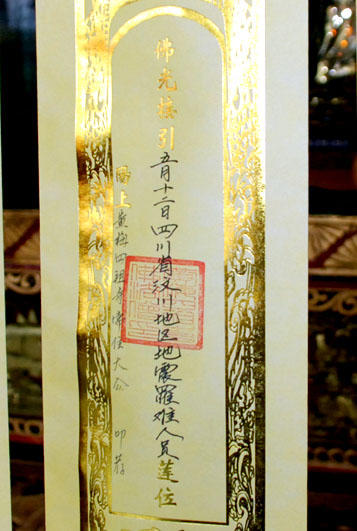 佛光接引
五月十二日四川省汶川地区地震罹难人员莲位
陽上 黄梅四祖寺常住大众 叩荐